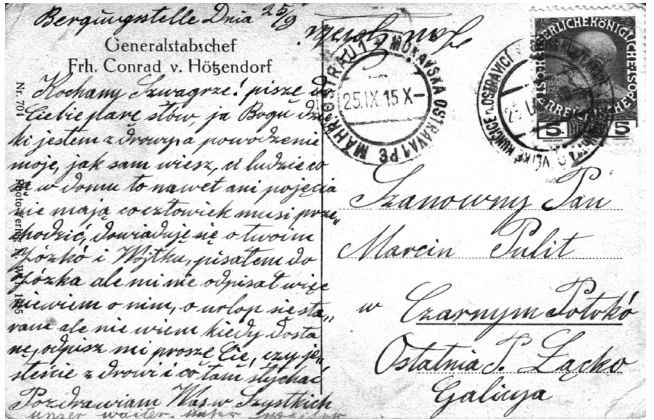 Bergungstelle Dnia 25/9
Generalstabschef
Frh. Conrad v. Hötzendorf
Kochany Szwagrze! piszę do
Ciebie parę słów, ja Bogu dzię
ki jestem zdrowy a powodzenie
moje, jak sam wiesz, ci ludzie co
są w domu to nawet ani pojęcia
nie mają co człowiek musi prze„
chodzić, dowiaduję się o twoim
Józko i Wojtku, pisałem do
Józka ale mi nie odpisał więc
niewiem o nim, o urlop się sta„
ram ale nie wiem kiedy dosta
nę, odpisz mi proszę Cię, czy je„
steście zdrowi co tam słychać
Pozdrawiam Was w Szystkich
Nr. 704
MÄHR. OSTRAU 1
MORAVSKÁ OSTRAVA 1
25.IX.15 X
5 5
Szanowny Pan
Marcin Pulit
w Czarnym Potokó
Ostatnia P. Łącko
Galicya